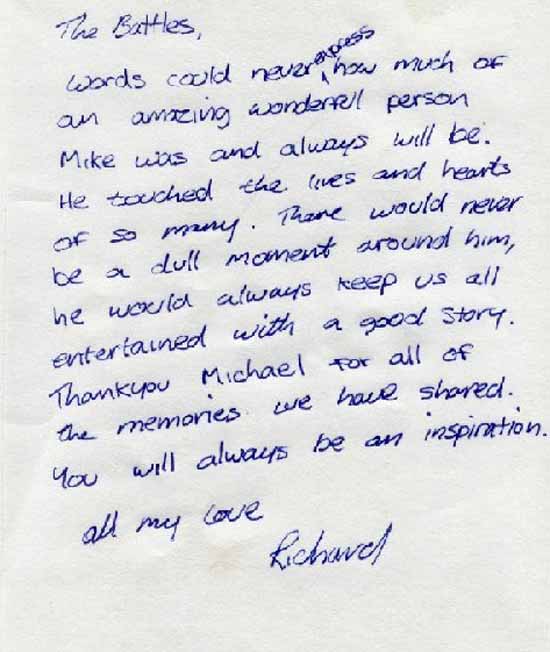 The Battles,
Words could never express how much of
an amazing wonderful person
Mike was and always will be.
He touched the lives and hearts
of so many. There would never
be a dull moment around him,
he would always keep us all
entertained with a good story.
Thankyou Michael for all of
the memories we have shared.
You will always be an inspiration.
all my love
Richard